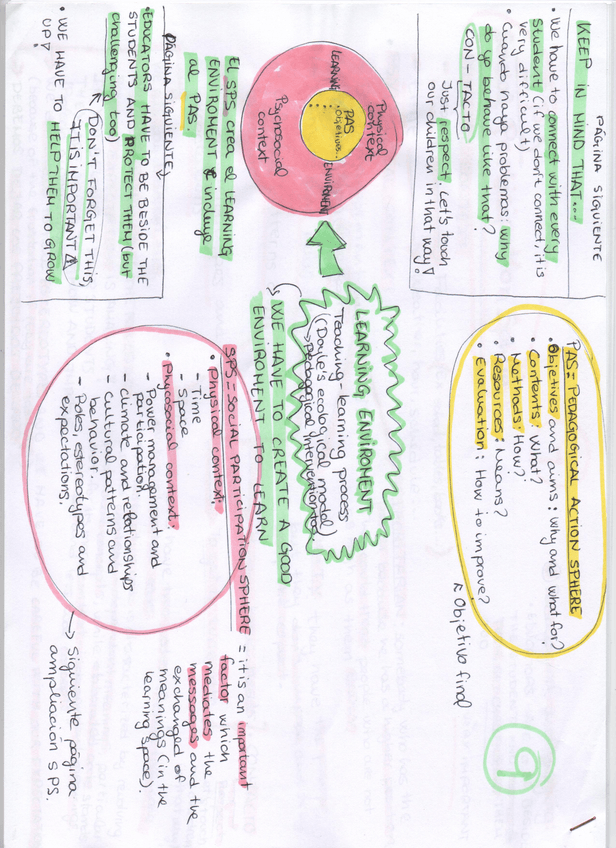 PÁGINA SIGUIENTE
KEEP IN MIND THAT...
• We have to connect with every
student (if we don't connect, it is
very difficult)
• Cuando haya problemas: why
do yo behave like that?
CON-TACTO
Just respect. Let's touch
our children in that way!
PAS = PEDAGOGICAL ACTION SPHERE
• Objetives and aims: why and what for?
• Contents: What?
• Methods: How?
• Resources: Means?
• Evaluation: How to improve?
Objetivo final
9
Physical
context
LEARNING
ENVIROMENT
PAS
Objetives
Psychosocial
context
El SPS crea el LEARNING
ENVIROMENT e incluye
al PAS.
LEARNING ENVIROMENT
Teaching-learning process
(Doyle's ecological model)
WE HAVE TO CREATE A GOOD
ENVIROMENT TO LEARN
SPS = SOCIAL PARTICIPATION SPHERE = it is an important
factor which
mediates the
messages and the
exchanged of
meanings (in the
learning space).
• Physical context:
- Time
- Space
• Phycosocial context:
- Power management and
participation.
- Climate and relationships
- Cultural patterns and
behavior.
- Roles, estereotypes and
expectations.
→ Siguiente página
ampliación SPS.
PÁGINA SIGUIENTE
• EDUCATORS HAVE TO BE BESIDE THE
STUDENTS AND PROTECT THEM (but
challenging too)
DON'T FORGET THIS,
IT IS IMPORTANT
• WE HAVE TO HELP THEM TO GROW
UP!